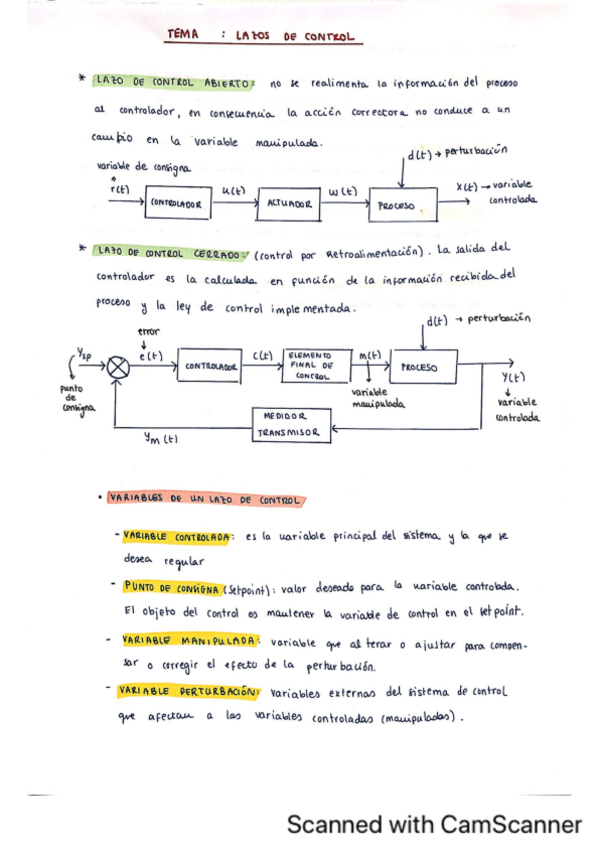 TEMA : LAZOS DE CONTROL
* LAZO DE CONTROL ABIERTO: no se realimenta la información del proceso
al controlador, en consecuencia la acción correctora no conduce a un
cambio en la variable manipulada.
d(t) → perturbación
variable de consigna
r(t)
CONTROLADOR
u(t)
ACTUADOR
w(t)
PROCESO
x(t) → variable
controlada
* LAZO DE CONTROL CERRADO: (control por Retroalimentación). La salida del
controlador es la calculada en función de la información recibida del
proceso y la ley de control implementada.
d(t) → perturbación
error
Ysp
e(t)
CONTROLADOR
c(t)
ELEMENTO
FINAL DE
CONTROL
m(t)
PROCESO
y(t)
punto
de
consigna
variable
manipulada
variable
controlada
MEDIDOR
TRANSMISOR
ym (t)
• VARIABLES DE UN LAZO DE CONTROL
- VARIABLE CONTROLADA: es la variable principal del sistema y la que se
desea regular
- PUNTO DE CONSIGNA (Setpoint): valor deseado para la variable controlada.
El objeto del control es mantener la variable de control en el set point.
- VARIABLE MANIPULADA: variable que al terar o ajustar para compen-
sar o corregir el efecto de la perturbación.
- VARIABLE PERTURBACIÓN: variables externas del sistema de control
que afectan a las variables controladas (manipuladas).
Scanned with CamScanner